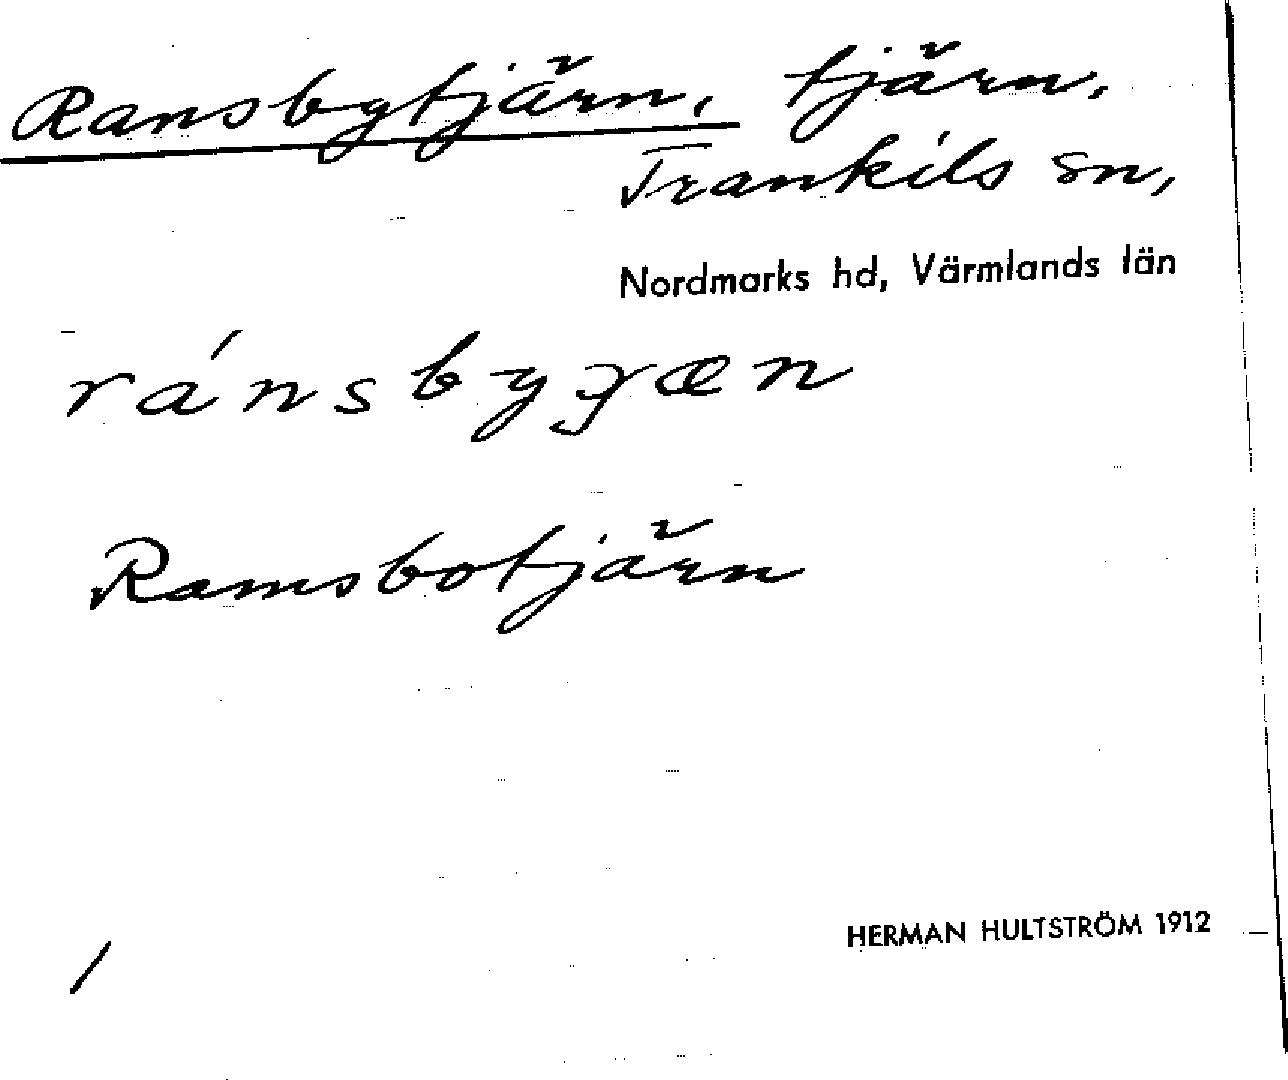 Ransbytjärn, tjärn,
Trankils sn,
Nordmarks hd, Värmlands län
Ramsbotjärn
HERMAN HULTSTRÖM 1912
/